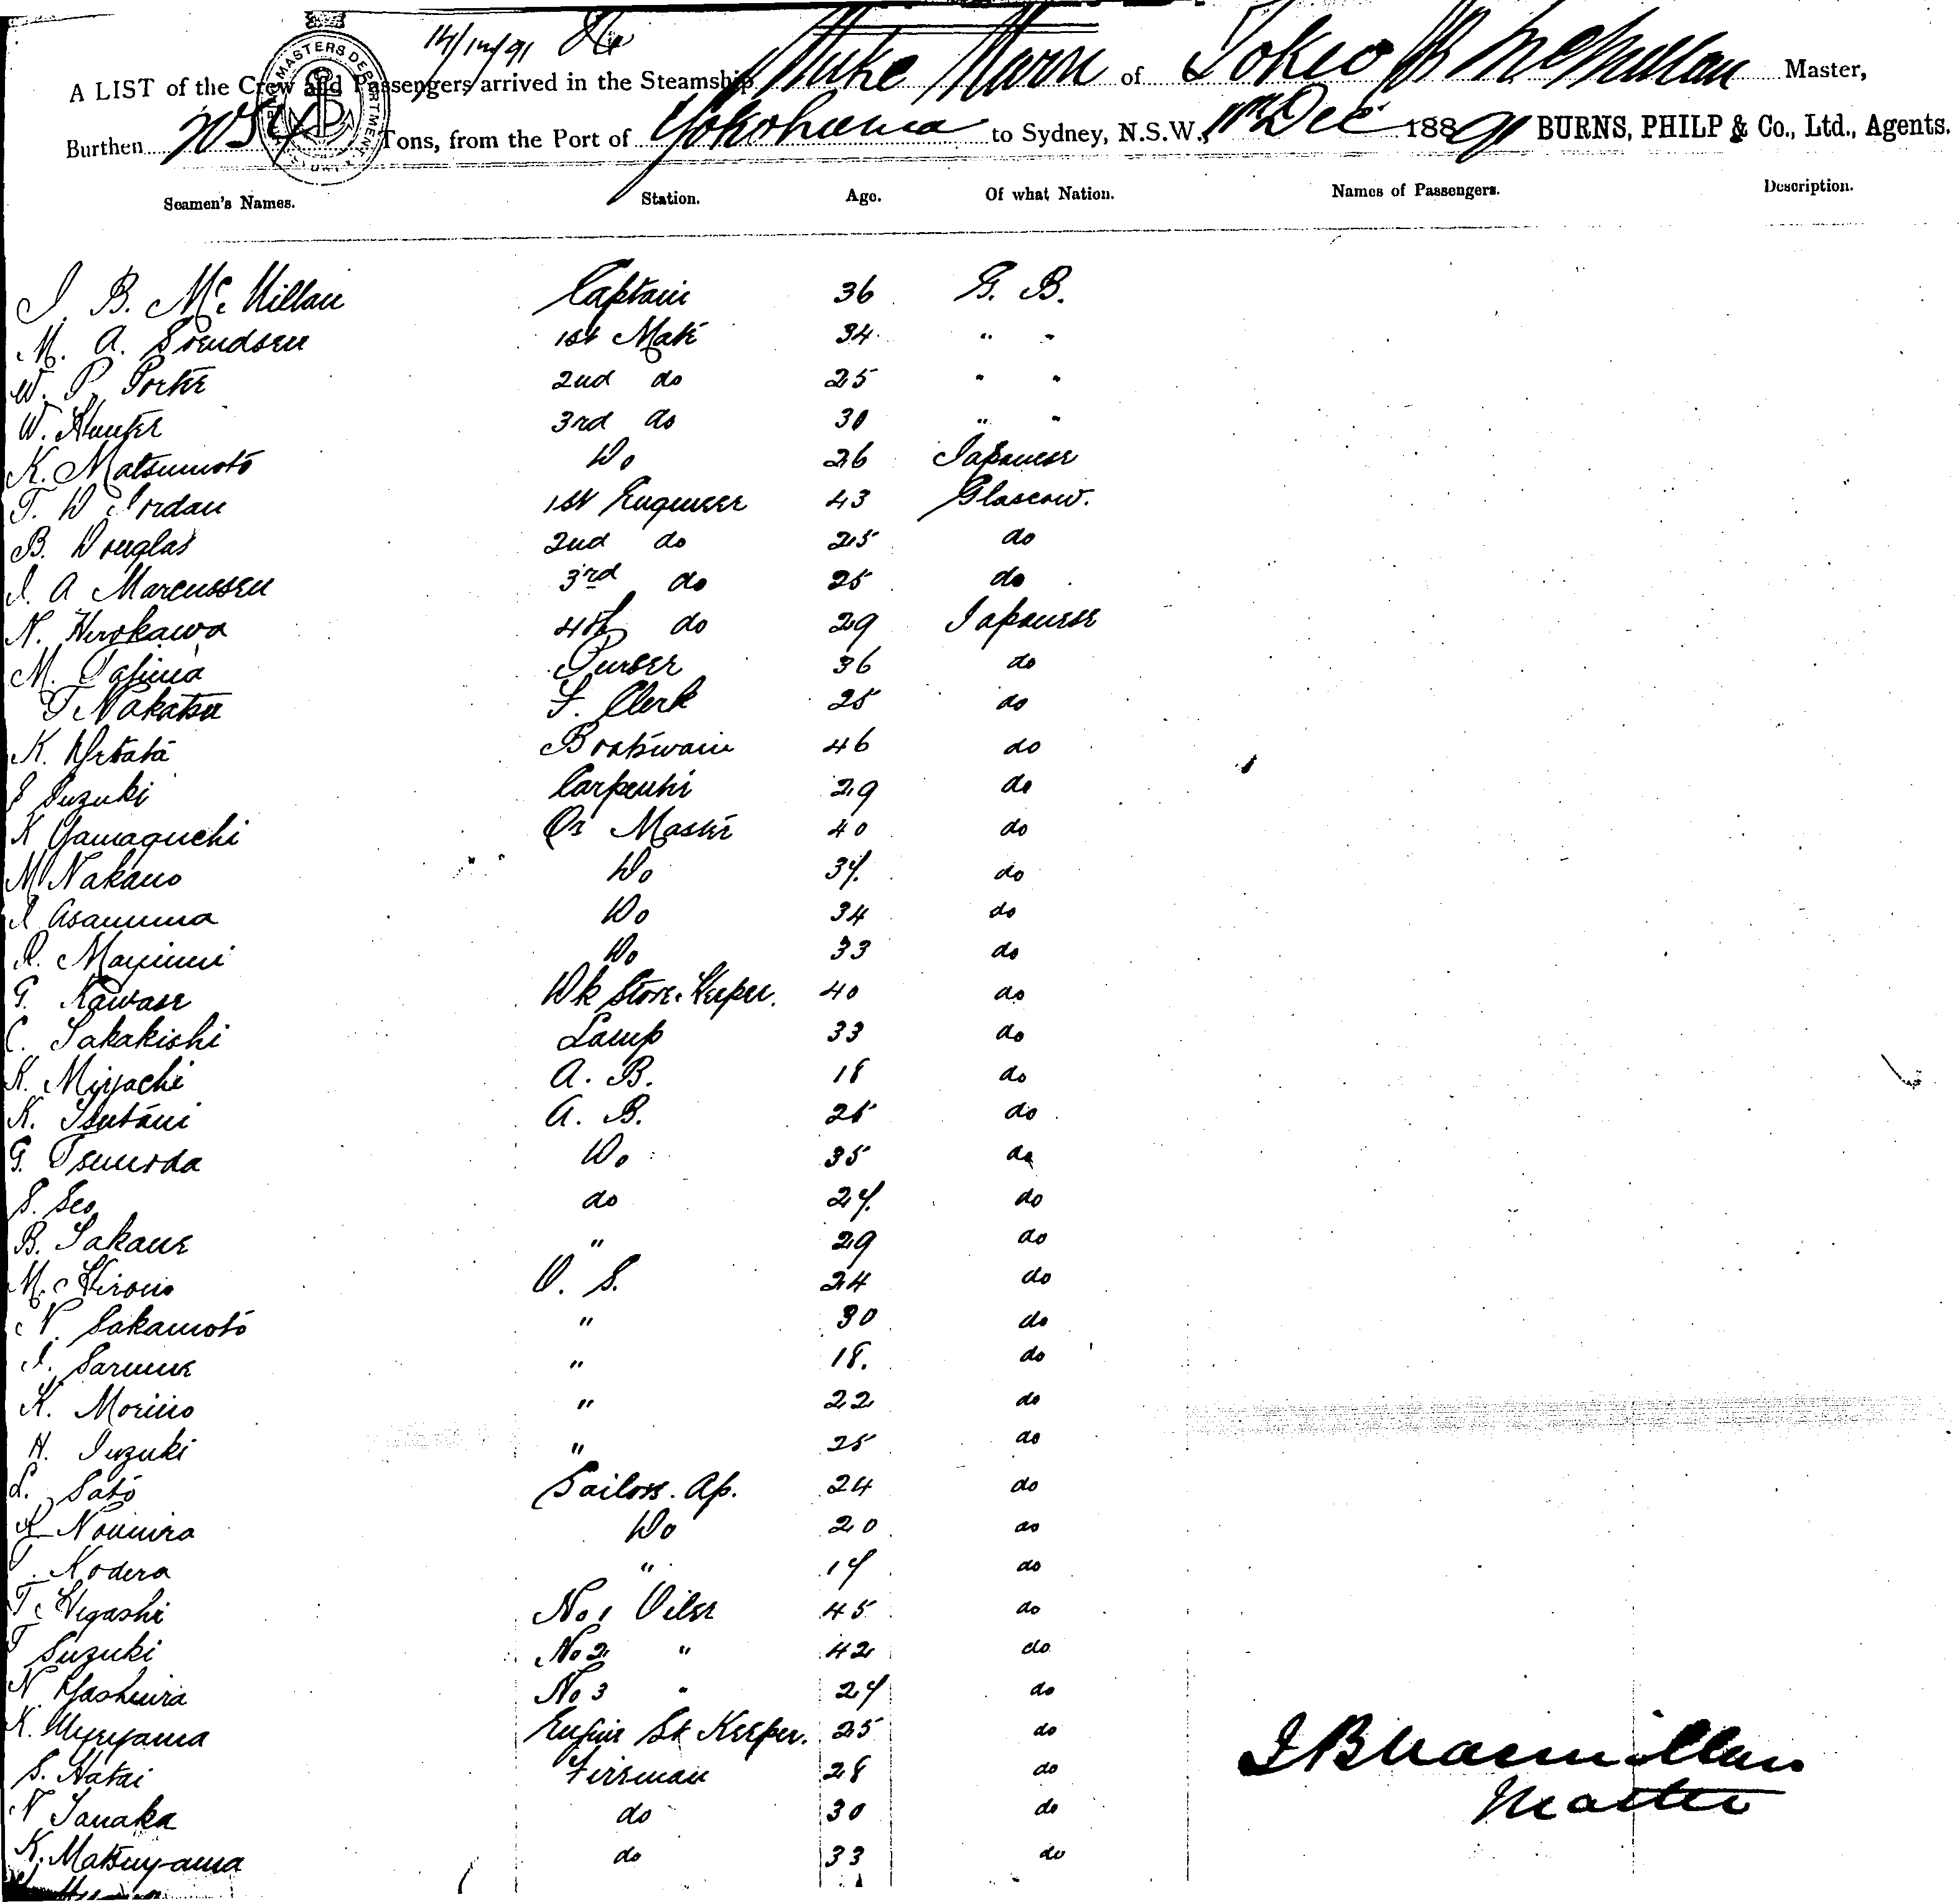 14/12/91
A LIST of the Crew and Passengers arrived in the Steamship Miike Maru of Tokio J B McMillan Master,
Burthen Tons, from the Port of Yokohama to Sydney, N.S.W., Dec 1891 BURNS, PHILP & Co., Ltd., Agents.
Seamen's Names. Station. Age. Of what Nation. Names of Passengers. Description.
J. B. McMillan Captain 36 G. B.
M. A. Svendsen 1st Mate 34 " "
W. P. Porter 2nd do 25 " "
W. Hunter 3rd do 30 " "
K. Matsumoto Do 26 Japanese
T. W Jordan 1st Engineer 43 Glascow.
B. Douglas 2nd do 25 do
J. A Marcussen 3rd do 25 do
N. Hirokawa 4th do 29 Japanese
M. Tajima Purser 36 do
T Nakatsu F. Clerk 25 do
K. Boatswain 46 do
S Suzuki Carpenter 29 do
K Yamaguchi Qr Master 40 do
M Nakano Do 37. do
J Asanuma Do 34 do
Do 33 do
G. Kawase Dk Store. Keeper. 40 do
C. Sakakishi Lamp 33 do
K. Miyachi A. B. 18 do
K. Tsutani A. B. 25 do
G. Tsunoda Do 35 do
S. Seo do 27. do
B. Sakane " 29 do
M. Hirono O. S. 24 do
N. Sakamoto " 30 do
" 18. do
K. Morino " 22 do
H. Suzuki " 25 do
Sato Sailors. Ap. 24 do
Nomura Do 20 do
Kodera " 17 do
T. Higashi No 1 Oiler 45 do
T Suzuki No 2 " 42 do
N. Yashima No 3 " 27 do
K. Engine St Keeper. 25 do
S. Hatai Fireman 28 do
N Tanaka do 30 do
K. Matsuyama do 33 do
J B Macmillan
Master